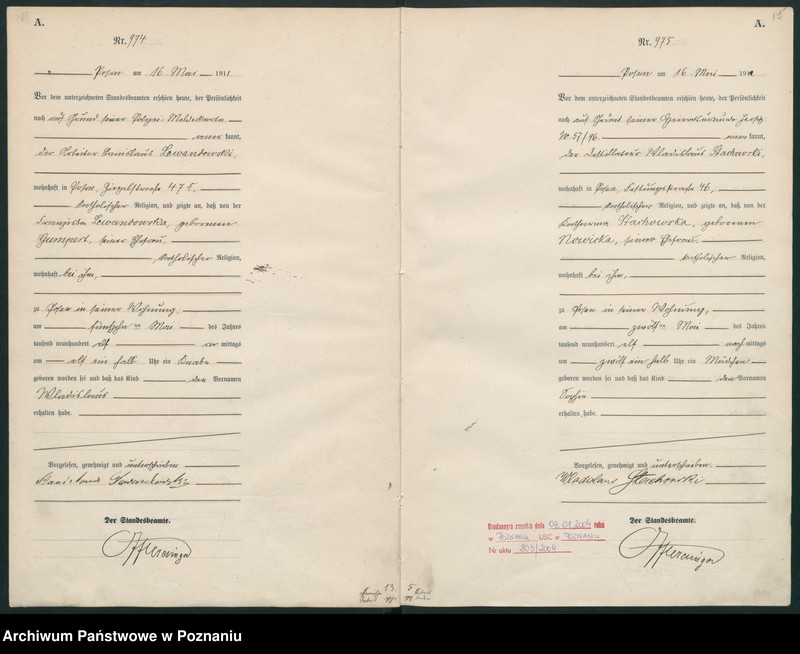 A.
Nr. 974
Posen am 16 Mai 1911
Vor dem unterzeichneten Standesbeamten erschien heute, der Persönlichkeit
nach auf Grund seiner Polizei Meldekarte
kannt,
der Arbeiter Stanislaus Lewandowski,
wohnhaft in Posen,
katholischer Religion, und zeigte an, daß von der
Franziska Lewandowska, geborenen
Gumpert, seiner Ehefrau,
katholischer Religion,
wohnhaft bei ihm,
zu Posen in seiner Wohnung,
am fünfzehnten Mai des Jahres
tausend neunhundert elf vor mittags
um elf ein halb Uhr ein Knabe
geboren worden sei und daß das Kind den Vornamen
Wladislaus
erhalten habe.
Vorgelesen, genehmigt und unterschrieben
Stanislaus Lewandowski
Der Standesbeamte.
13
A.
15
Nr. 975
Posen am 16 Mai 1911
Vor dem unterzeichneten Standesbeamten erschien heute, der Persönlichkeit
nach auf Grund seiner Heiratsurkunde
No 57/96. kannt,
der Destillateur Wladislaus Stachowski,
wohnhaft in Posen, 46,
katholischer Religion, und zeigte an, daß von der
Katharina Stachowska, geborenen
Nowicka, seiner Ehefrau.
katholischer Religion,
wohnhaft bei ihm,
zu Posen in seiner Wohnung,
am zwölften Mai des Jahres
tausend neunhundert elf nach mittags
um zwölf ein halb Uhr ein Mädchen
geboren worden sei und daß das Kind den Vornamen
Sophia
erhalten habe.
Vorgelesen, genehmigt und unterschrieben.
Wladislaus Stachowski
Der Standesbeamte.
zmarła dnia 08.01.2004 roku
w POZNANIU USC w POZNANIU
Nr aktu 203/2004
5
Archiwum Państwowe w Poznaniu